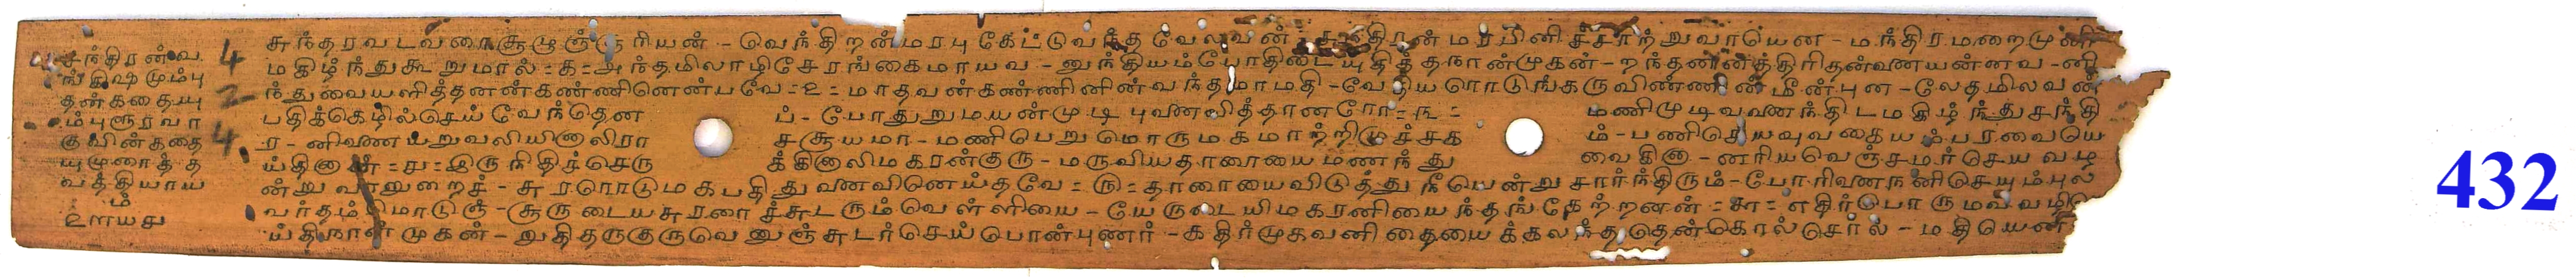 சந்திரன்வ
ங்கிஷமும்பு
தன்கதையு
ம்புரூரவா
குவின்கதை
யுமுரைத்த
வத்தியாய
ம்
உளயசு
4
2
4
சுந்தரவடவரைசூழஞ்சூரியன் - வெந்திறன்மரபுகேட்டுவந்த வேலவன் மரபினி ச்சாற்றுவாயென - மந்திரமறைமுனி
மகிழ்ந்துகூறுமால் = க = அந்தமிலாழிசேரங்கைமாயவ - னுந்தியம்போதிடை யுதித்தநான்முகன் - றந்தனன்த்திரிதன்வணயன்னவ - னி
ந்துவையளித்தனன்கண்ணினென்பவே = உ = மாதவன்கண்ணினின்வந்தமாமதி - வேதியரொடுங்கருவிண்ணின்மீன்புன - லேதமிலவன்
பதிக்கெழில்செய் வேந்தென ப் - போதுறுமயன்முடி புவணவித்தானரோ = ந = மணிமுடிவுவணந்திடமகிழ்ந்துசந்தி
ர - னிவணயுறுவலியினாலிரா சசூயமா - மணிபெறுமொருமகமாற்றிமுச்சக ம் - பணிசெயவுவதையம்பரவையெ
ய்தினான் = ச = இருநிதிக்செரு க்கினாலிமகரன்குரு - மருவியதாரையை மணந்து வைகினா - னரியவெஞ்சமர்செய வழ
ன்று வானுறைச் - சுரரொடுமகபதிதுவணவினெய்தவே = ரு = தாரையைவிடுத்து நீயென்று சார்ந்திரும் - போரிவணநனிசெயும்புல
வர்தம்மொடுஞ் - சூருடையசுரரைச்சுடரும்வெள்ளியை - யேருடையிமகரனியைந்தங்கேற்றனன் = சா = எதிர்பொருமவ்வழி
ய்திநான்முகன் - அதிதருகுருவெனுஞ்சுடர்செய்பொன்புணர் - கதிர்முகவனிதையைக்கலந்ததென்கொல்சொல் - மதியென்
432